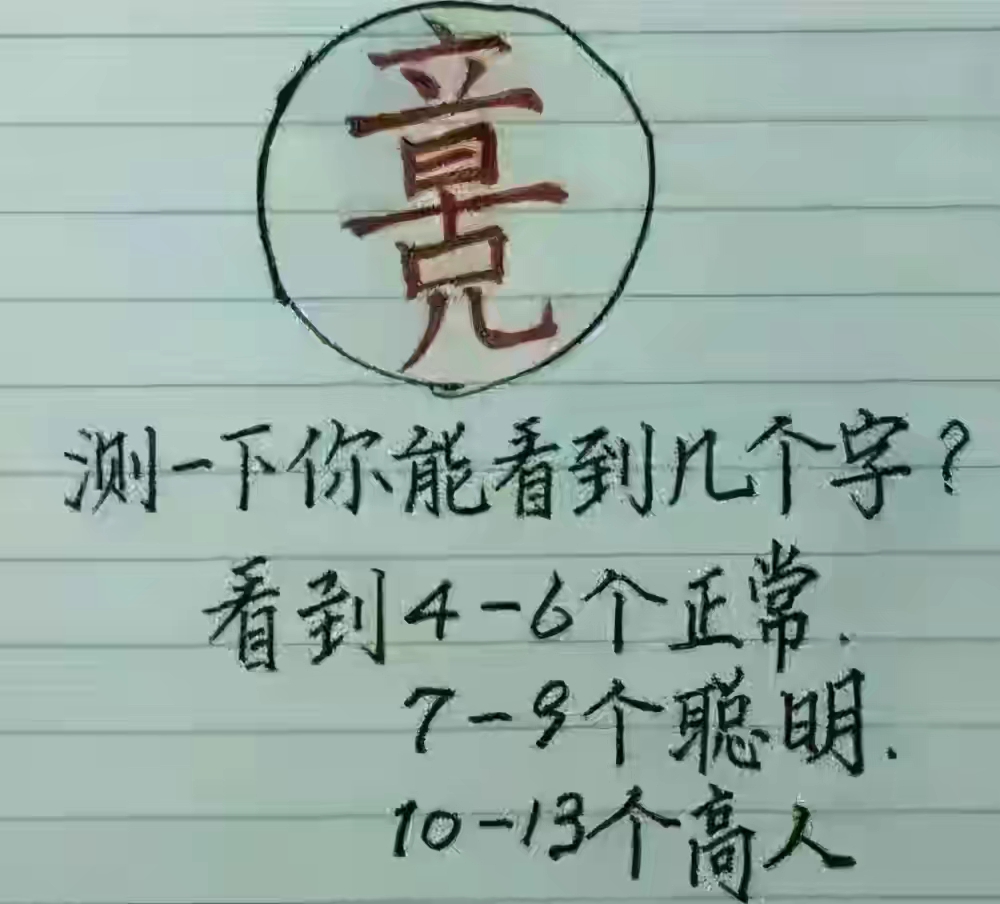 测一下你能看到几个字？
看到4-6个正常.
7-9个聪明.
10-13个高人